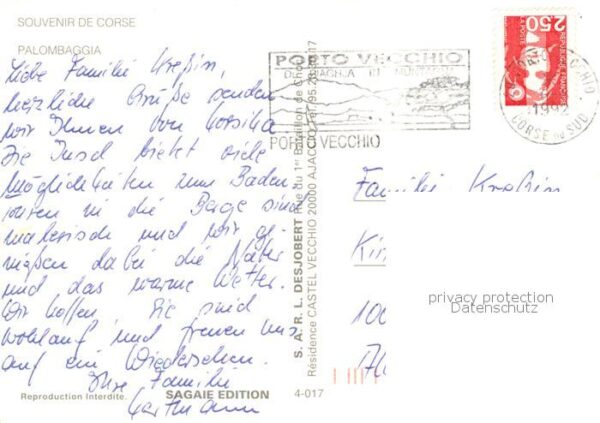 SOUVENIR DE CORSE
PALOMBAGGIA
Liebe Familie Kreßin,
herzliche Grüße senden
wir Ihnen von Korsika
Die Insel bietet viele
Möglichkeiten zum Baden
in die Berge sind
malerisch und wir ge-
nießen dabei die Natur
und das warme Wetter.
Wir hoffen, Sie sind
wohlauf und freuen uns
auf ein Wiedersehen.
Ihre Familie
Hartmann
Reproduction Interdite.
SAGAIE EDITION
4-017
S. A. R. L. DESJOBERT Rue du 1er Bataillon de Choc
Résidence CASTEL VECCHIO 20000 AJACCIO Tél. 95.
PORTO VECCHIO
PORTO VECCHIO
2,50
REPUBLIQUE FRANÇAISE
LA POSTE
1992
CORSE DU SUD
Familie Kreßin
privacy protection
Datenschutz